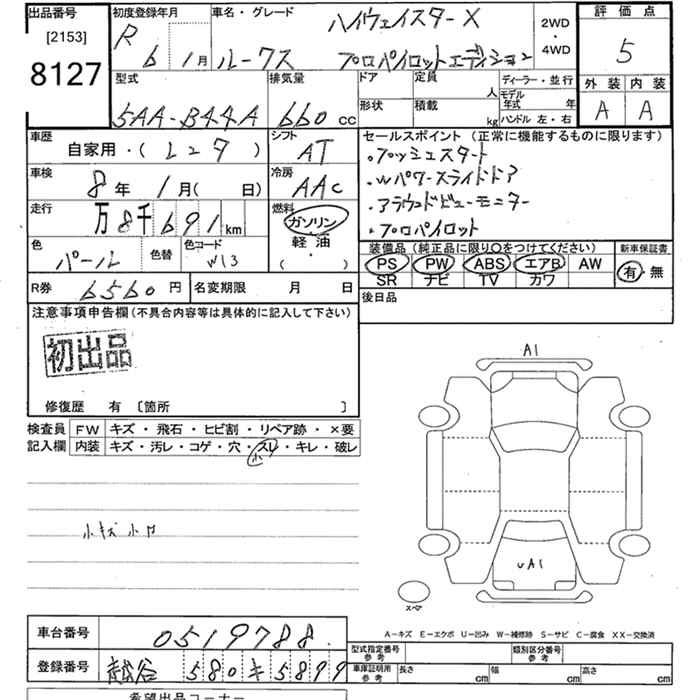 出品番号
[2153]
8127
初度登録年月
R 6年 1月
車名・グレード
ハイウェイスターX
ルークス プロパイロットエディション
2WD
・
4WD
評価点
5
外装 内装
A A
型式
5AA-B44A
排気量
660 cc
ドア
定員 人
形状
積載 kg
ディーラー・並行
モデル年式 年
ハンドル 左・右
車歴
自家用・( レンタ )
シフト
AT
車検
8年 1月( 日)
冷房
AAC
走行
万8千691km
燃料
ガソリン
・
軽油
( )
色
パール
色替
色コード
W13
R券 6560円
名変期限 月 日
セールスポイント(正常に機能するものに限ります)
・プッシュスタート
・Wパワースライドドア
・アラウンドビューモニター
・プロパイロット
装備品(純正品に限り〇をつけてください)
PS PW ABS エアB AW
SR ナビ TV カワ
新車保証書
有・無
後日品
注意事項申告欄(不具合内容等は具体的に記入して下さい)
初出品
修復歴 有 〔箇所 〕
検査員記入欄
FW キズ・飛石・ヒビ割・リペア跡・×要
内装 キズ・汚レ・コゲ・穴・スレ・キレ・破レ
小
小キズ小凹
A1
UA1
スペア
A-キズ E-エクボ U-凹み W-補修跡 S-サビ C-腐食 XX-交換済
車台番号 0519788
登録番号 越谷 580 キ 5899
型式指定番号 参考
類別区分番号 参考
車庫証明用 参考
長さ cm
幅 cm
高さ cm
希望出品コーナー